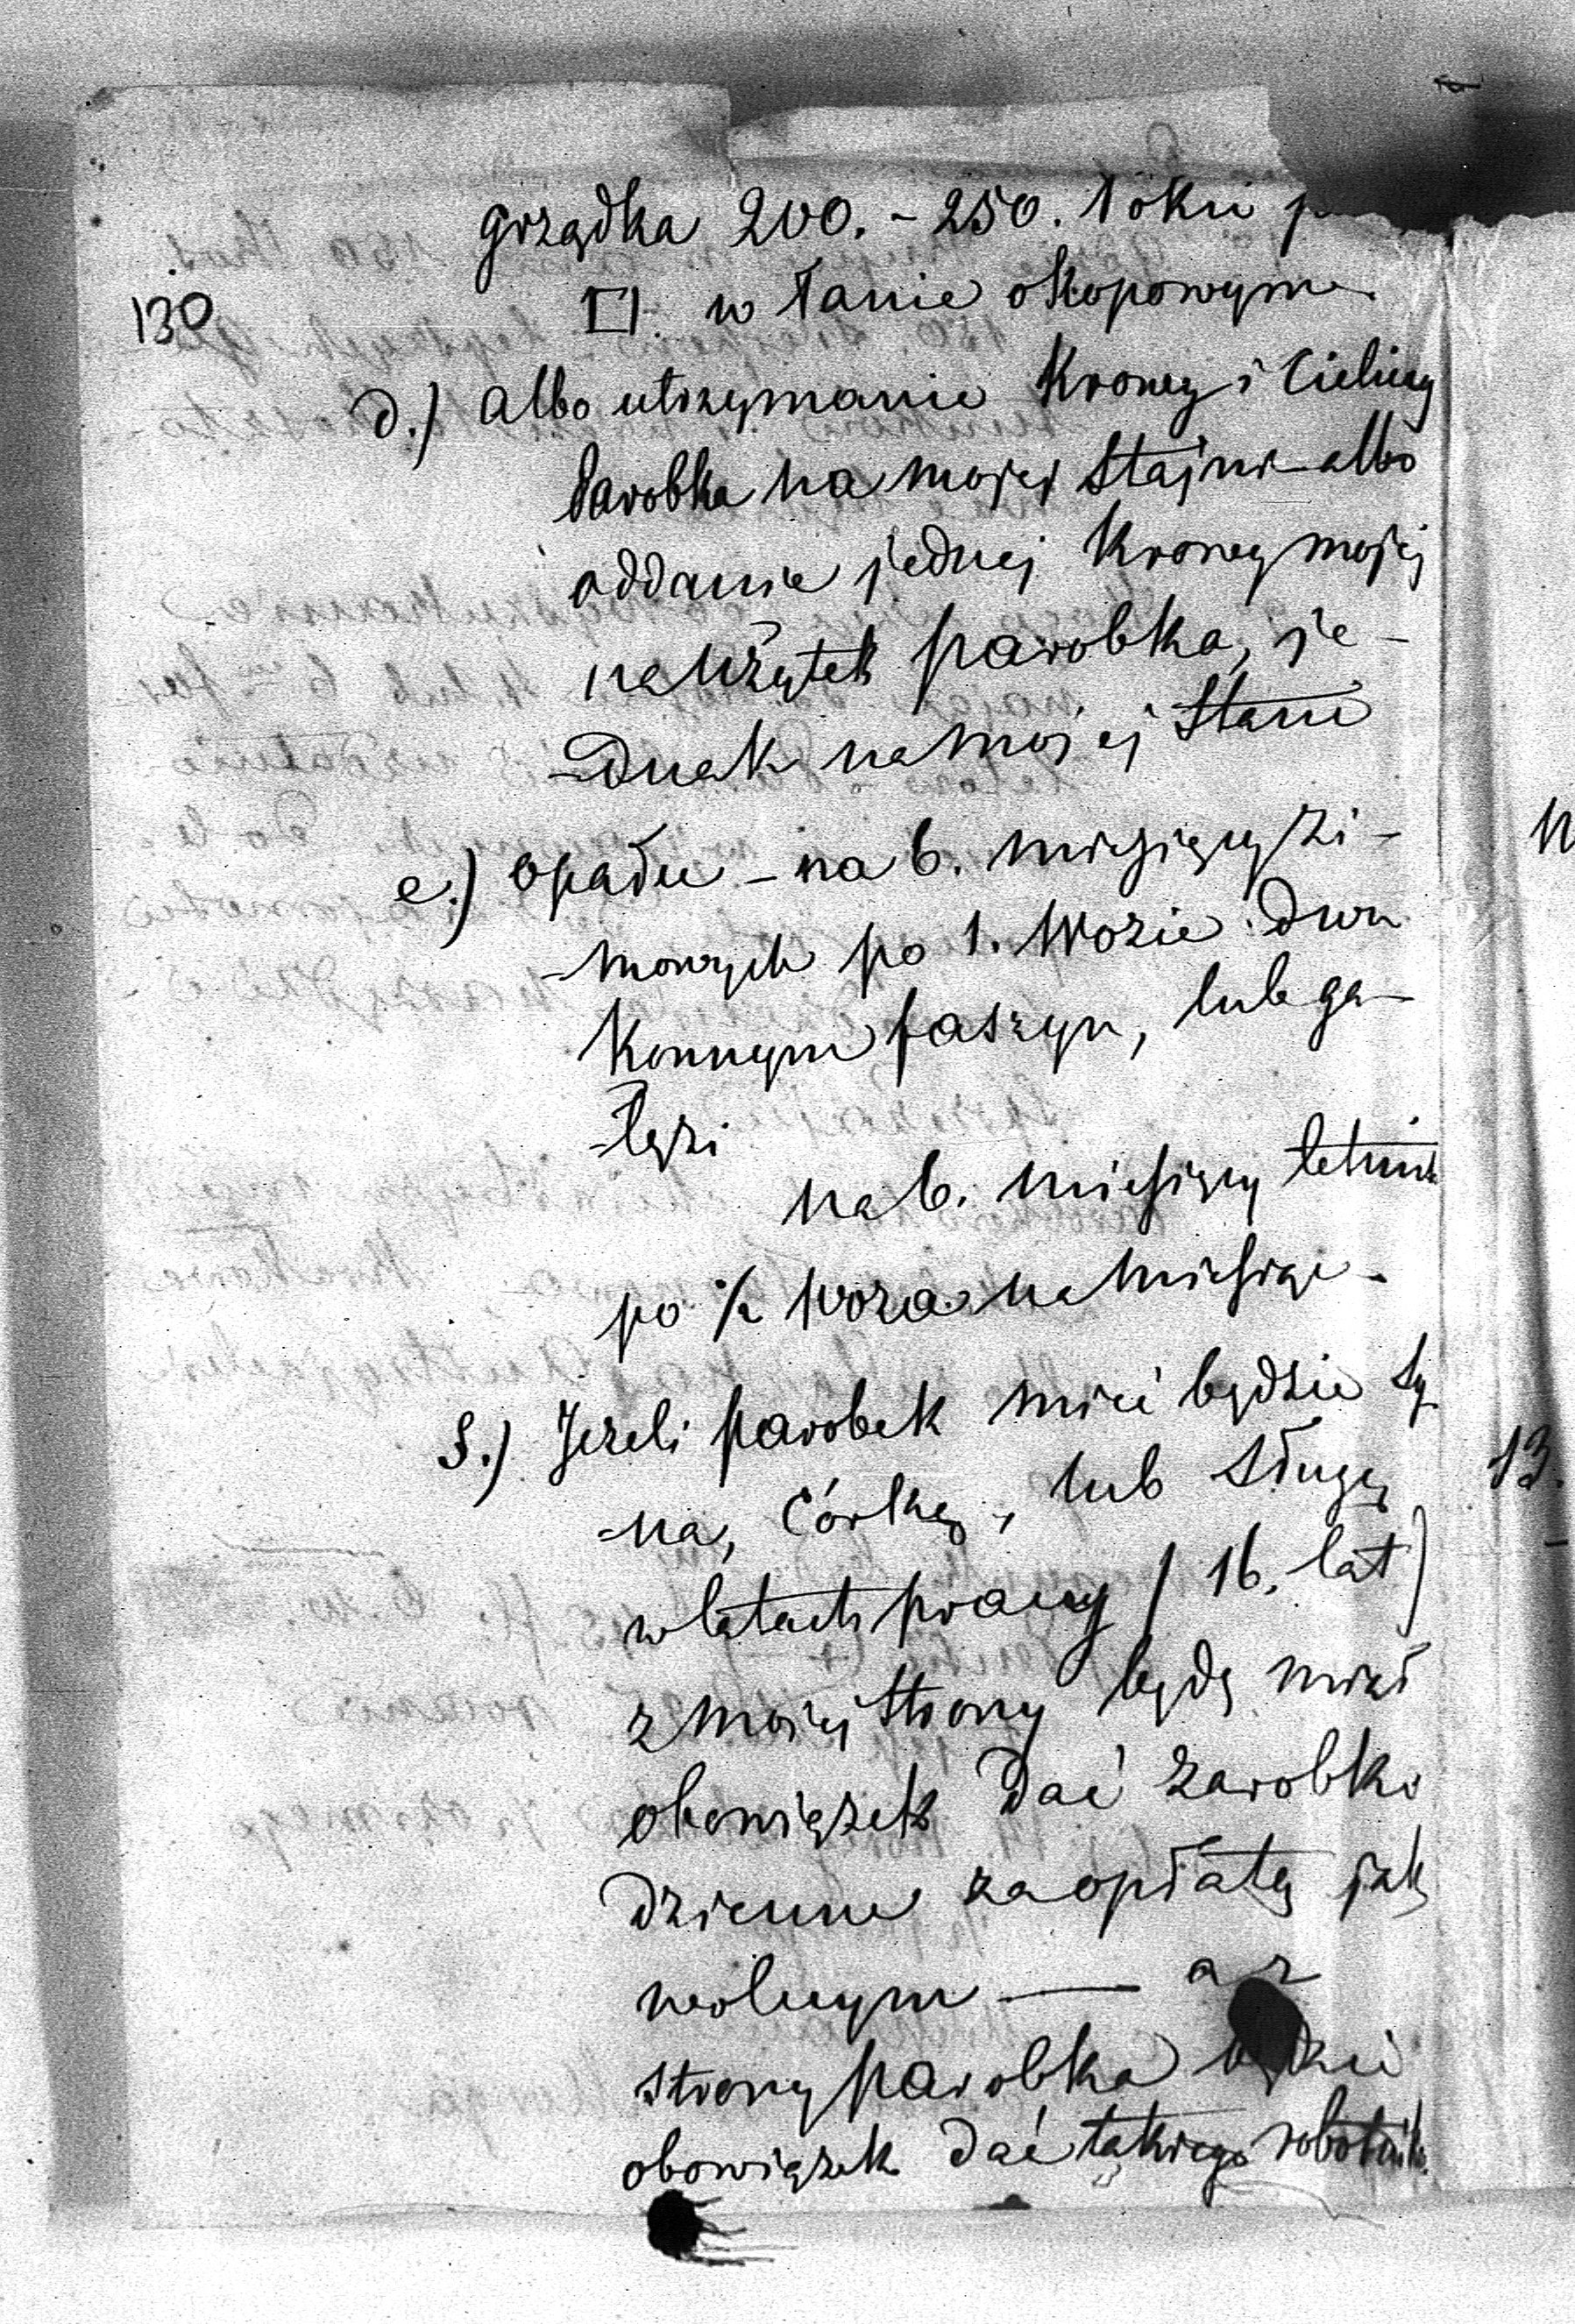 grządka 200. - 250. łokci
130
□. w łanie okopowym.
d.) albo utrzymanie krowy i cielicy
parobka na mojej stajni - albo
oddanie jednej krowy mojej
na użytek parobka, je-
-dnak na mojej stani
e.) opału - na 6. miesięcy zi-
-mowych po 1. wozie dwu
konnym faszyn, lub ga-
-łęzi
na 6. miesięcy letnich
po ½ woza na miesiąc.
f.) Jeżeli parobek mieć będzie sy-
-na, córkę, lub sługę
w latach pracy / 16. lat)
z mojej strony będę miał
obowiązek dać zarobki
dzienne za opłatą jak
wolnym — a z
strony parobka
obowiązek dać takiego robotnika.
13.